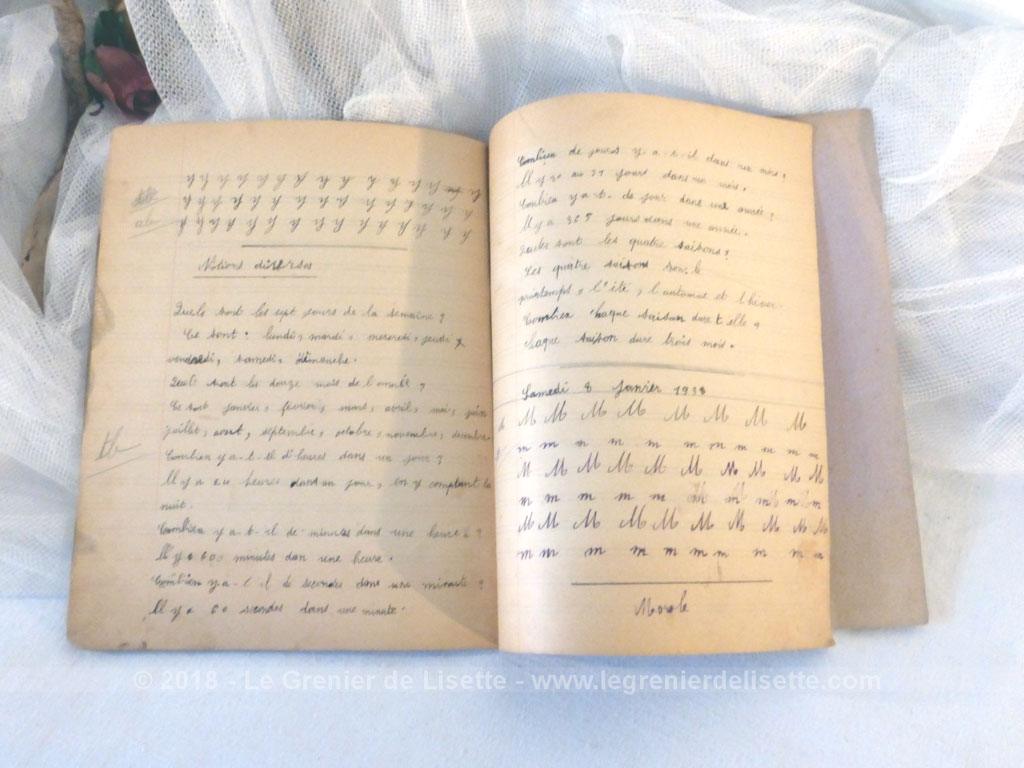 h h h h h h h h h h h h h h h
h h h h h h h h h h h h h h h
h h h h h h h h h h h h h h h
Notions diverses
Quels sont les sept jours de la semaine ?
Ce sont : lundi, mardi, mercredi, jeudi,
vendredi, samedi, dimanche.
Quels sont les douze mois de l'année ?
Ce sont janvier, février, mars, avril, mai, juin
juillet, aout, septembre, octobre, novembre, décembre
tb
Combien y a-t-il d'heures dans un jour ?
Il y a heures dans un jour, en y comptant la
nuit.
Combien y a-t-il de minutes dans une heure ?
Il y a 60 minutes dan une heure.
Combien y a-t il de secondes dans une minute ?
Il y a 60 secondes dans une minute.
Combien de jours y a-t-il dans un mois ?
Il y 30 au 31 jours dans un mois.
Combien y a-t- de jour dans une année ?
Il y a 365 jours dans une année.
Quels sont les quatre saisons ?
Les quatre saison sont le
printemps, l'été, l'automne et l'hiver.
Combien chaque saison dure t elle ?
chaque saison dure trois mois.
Samedi 8 Janvier 1938
M M M M M M M M
m m m m m m m m m
M M M M M M M M M M
m m m m m m m m m m
M M M M M M M M M M
m m m m m m m m m m
Morale
© 2018 - Le Grenier de Lisette - www.legrenierdelisette.com